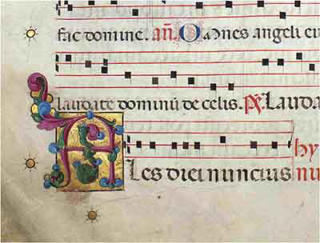 fac domine. añ. Omnes angeli ei
laudate dominū de celis. ps. Lauda
Ales diei nuncius hy
nu